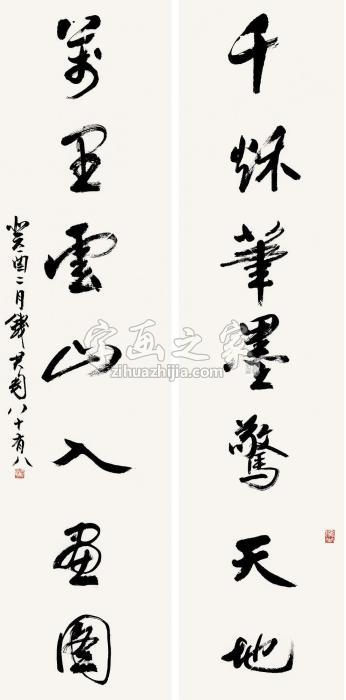 千烁笔墨驚天地
萬里雲山入畫圖
癸酉二月錢君匋八十有八
字画之家
zihuazhijia.com